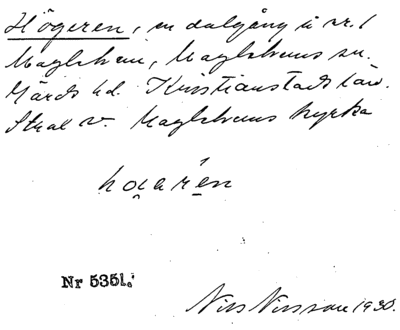 Högeren, en dalgång å nr. 1
Maglehem, Maglehems sn.
Gärds hd. Kristianstads län.
Strax v. Maglehems kyrka
högarén
Nr 5351.
Nils Nilsson 1930.